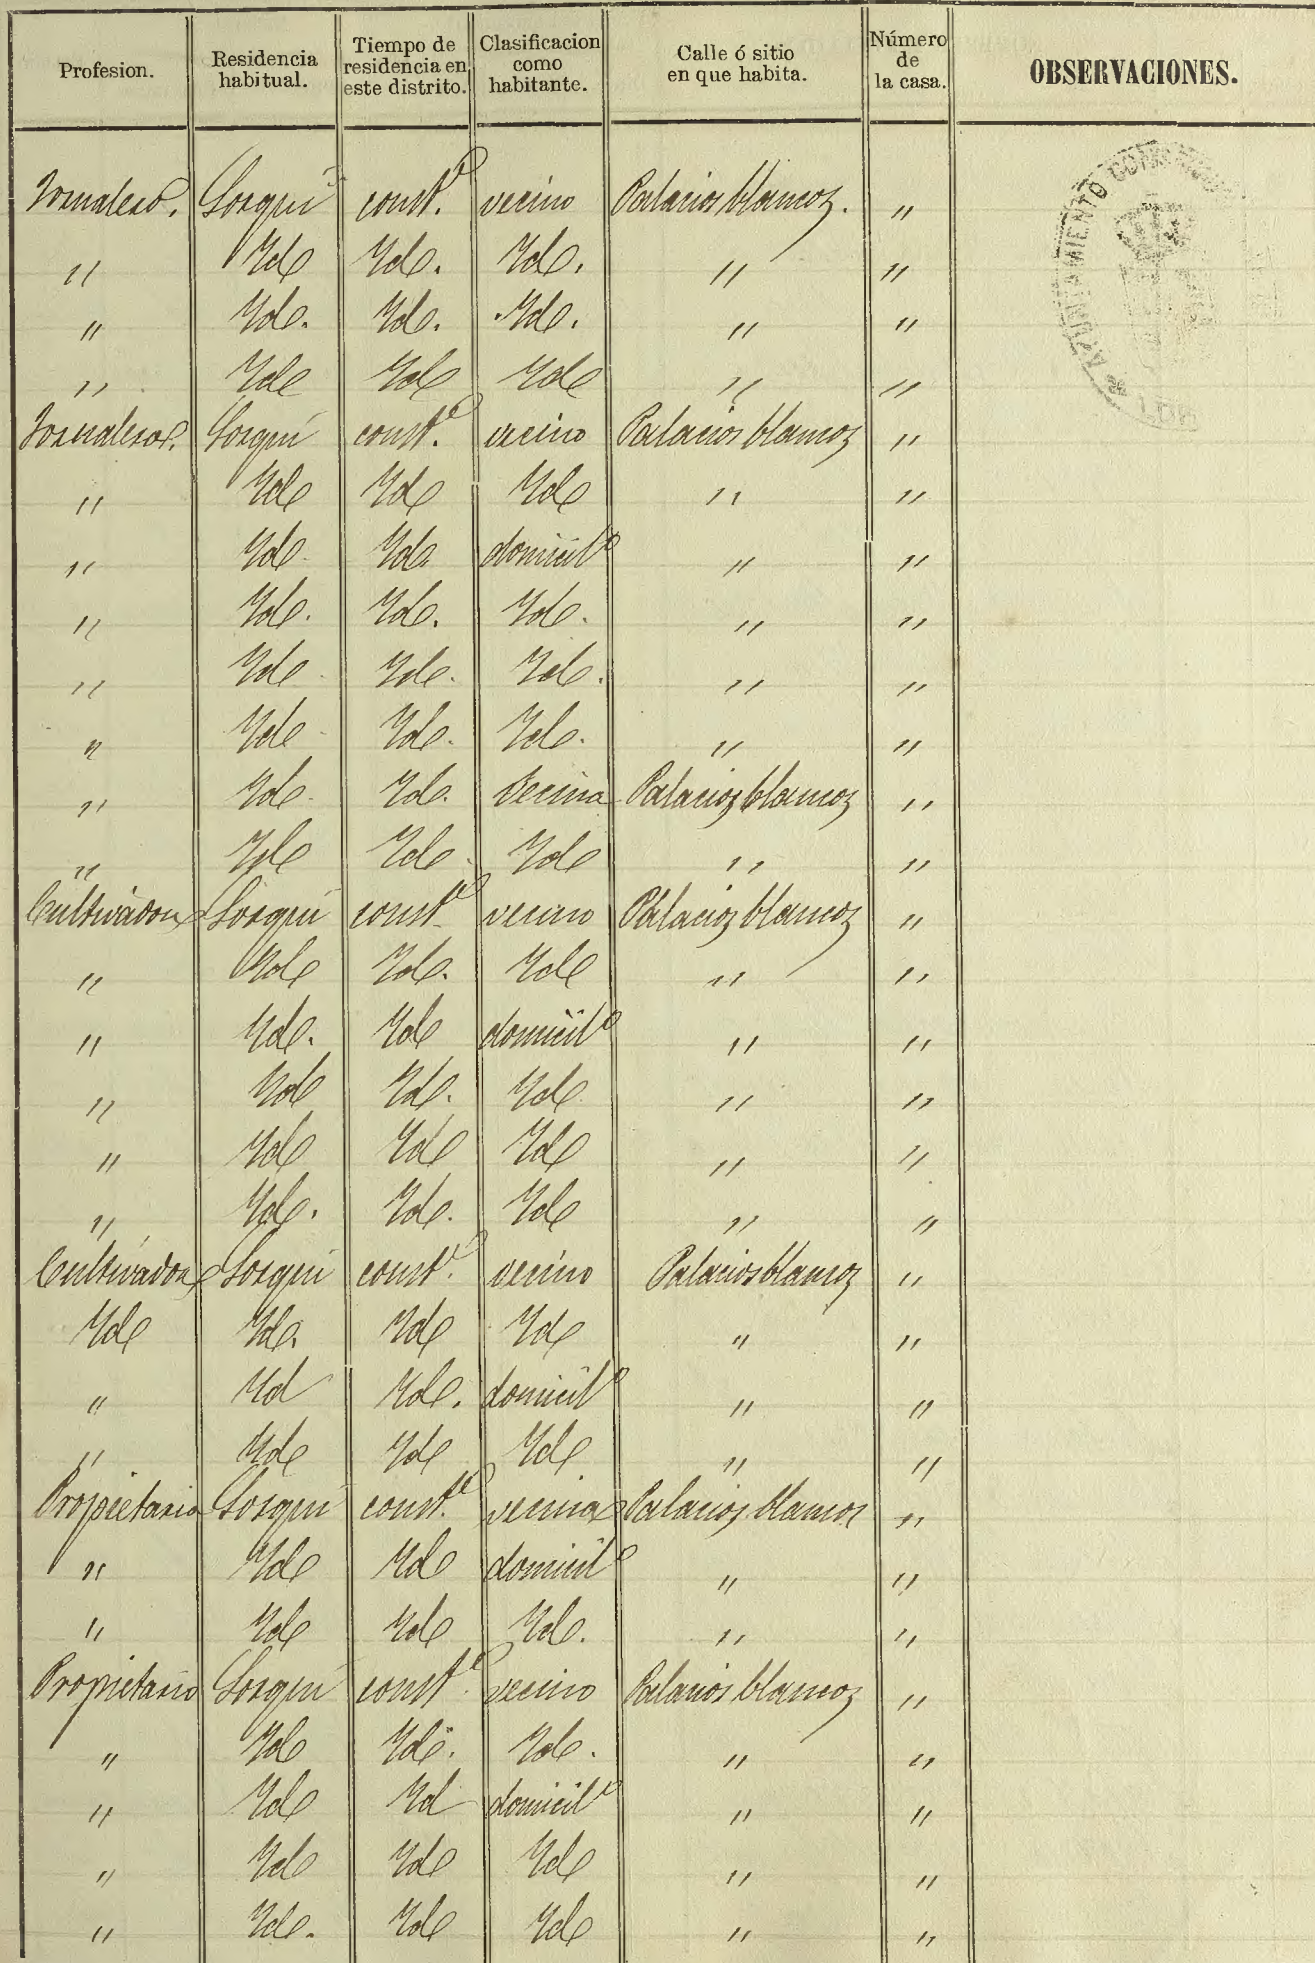 Profesion. Residencia habitual. Tiempo de residencia en este distrito. Clasificacion como habitante. Calle ó sitio en que habita. Número de la casa. OBSERVACIONES.
AYUNTAMIENTO
Jornalero. Lorquí const.e vecino Palacios blancos. "
" Yde Yde. Yde. " "
" Yde. Yde. Yde. " "
" Yde Yde Yde " "
Jornalero. Lorquí const.e vecino Palacios blancos "
" Yde Yde Yde " "
" Yde Yde domicil.o " "
" Yde. Yde. Yde. " "
" Yde Yde. Yde. " "
" Yde Yde. Yde. " "
" Yde Yde. Vecina Palacios blancos "
" Yde Yde Yde " "
Cultivador Lorquí const.e vecino Palacios blancos "
" Yde Yde. Yde " "
" Yde. Yde domicil.o " "
" Yde Yde. Yde " "
" Yde Yde Yde " "
" Yde. Yde. Yde " "
Cultivador Lorquí const.e vecino Palacios blancos "
Yde Yde. Yde Yde " "
" Yd Yde. domicil.o " "
" Yde Yde Yde " "
Propietario Lorquí const.e vecina Palacios blancos "
" Yde Yde domicil.o " "
" Yde Yde Yde. " "
Propietario Lorquí const.e vecino Palacios blancos "
" Yde Yde. Yde. " "
" Yde Yd domicil.o " "
" Yde Yde Yde " "
" Yde. Yde Yde " "